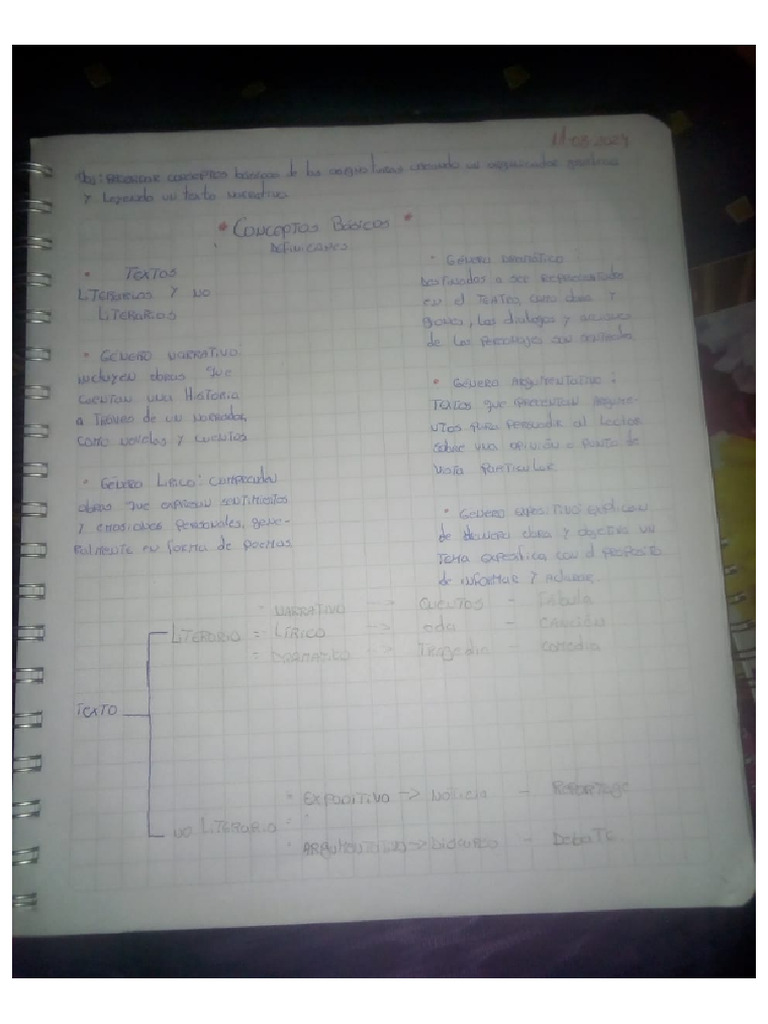 11-03-2024
Obj: recordar conceptos básicos de las asignaturas creando un organizador gráfico
y leyendo un texto narrativo.
• Conceptos Básicos •
DEFINICIONES
• TEXTOS
LITERARIOS Y NO
LITERARIOS
• GÉNERO NARRATIVO:
incluyen obras que
cuentan una Historia
a Través de un narrador,
como novelas y cuentos
• Género Lírico: comprenden
obras que expresan sentimientos
y emociones personales, gene-
ralmente en forma de poemas.
• Género Dramático:
Destinados a ser representados
en el TEATRO, como obra y
, Los dialogos y acciones
de Los personajes son
• Género Argumentativo:
Textos que presentan argume-
ntos para persuadir al Lector
sobre una opinión o punto de
vista particular.
• Género expositivo: explican
de manera clara y objetiva un
Tema especifico con el proposito
de informar y aclarar.
TEXTO
LITERARIO
• NARRATIVO --> Cuentos - Fábula
= LÍRICO --> oda - CANCIÓN
= DRAMATICO --> Tragedia - comedia
NO LITERARIO
• EXPOSITIVO --> Noticia - REPORTAJE
• ARGUMENTATIVO --> Discurso - DebaTE